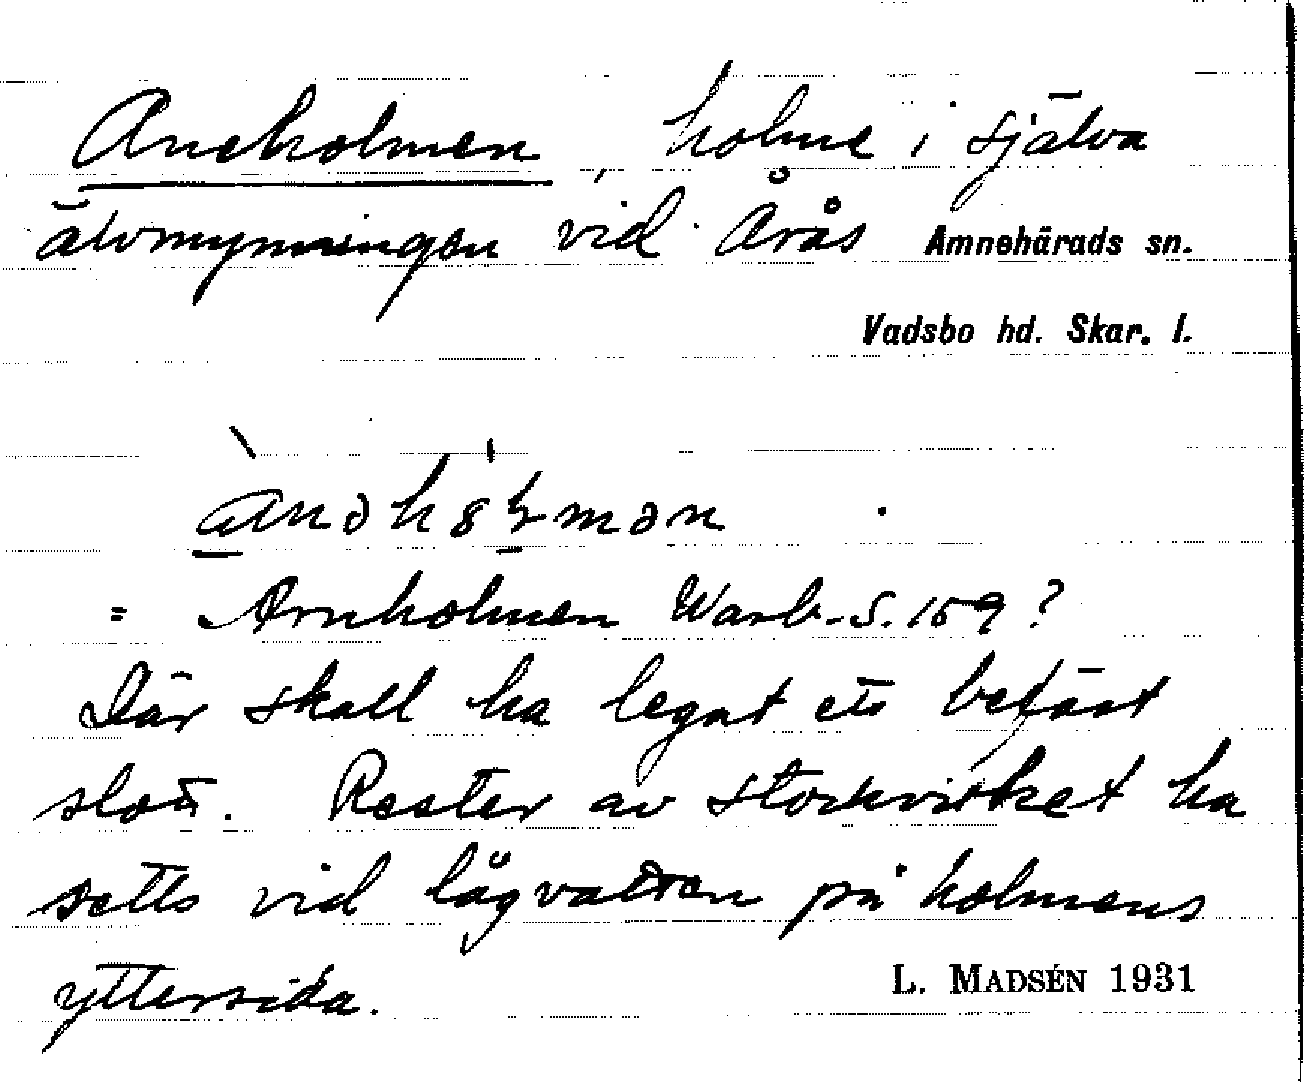 Aneholmen, holme i själva
älvmynningen vid Årås Amnehärads sn.
Vadsbo hd. Skar. l.
= Arnholmen Warb. S. 159?
Där skall ha legat ett befäst
slott. Rester av stockvirket ha
setts vid lågvatten på holmens
yttersida.
L. MADSÉN 1931